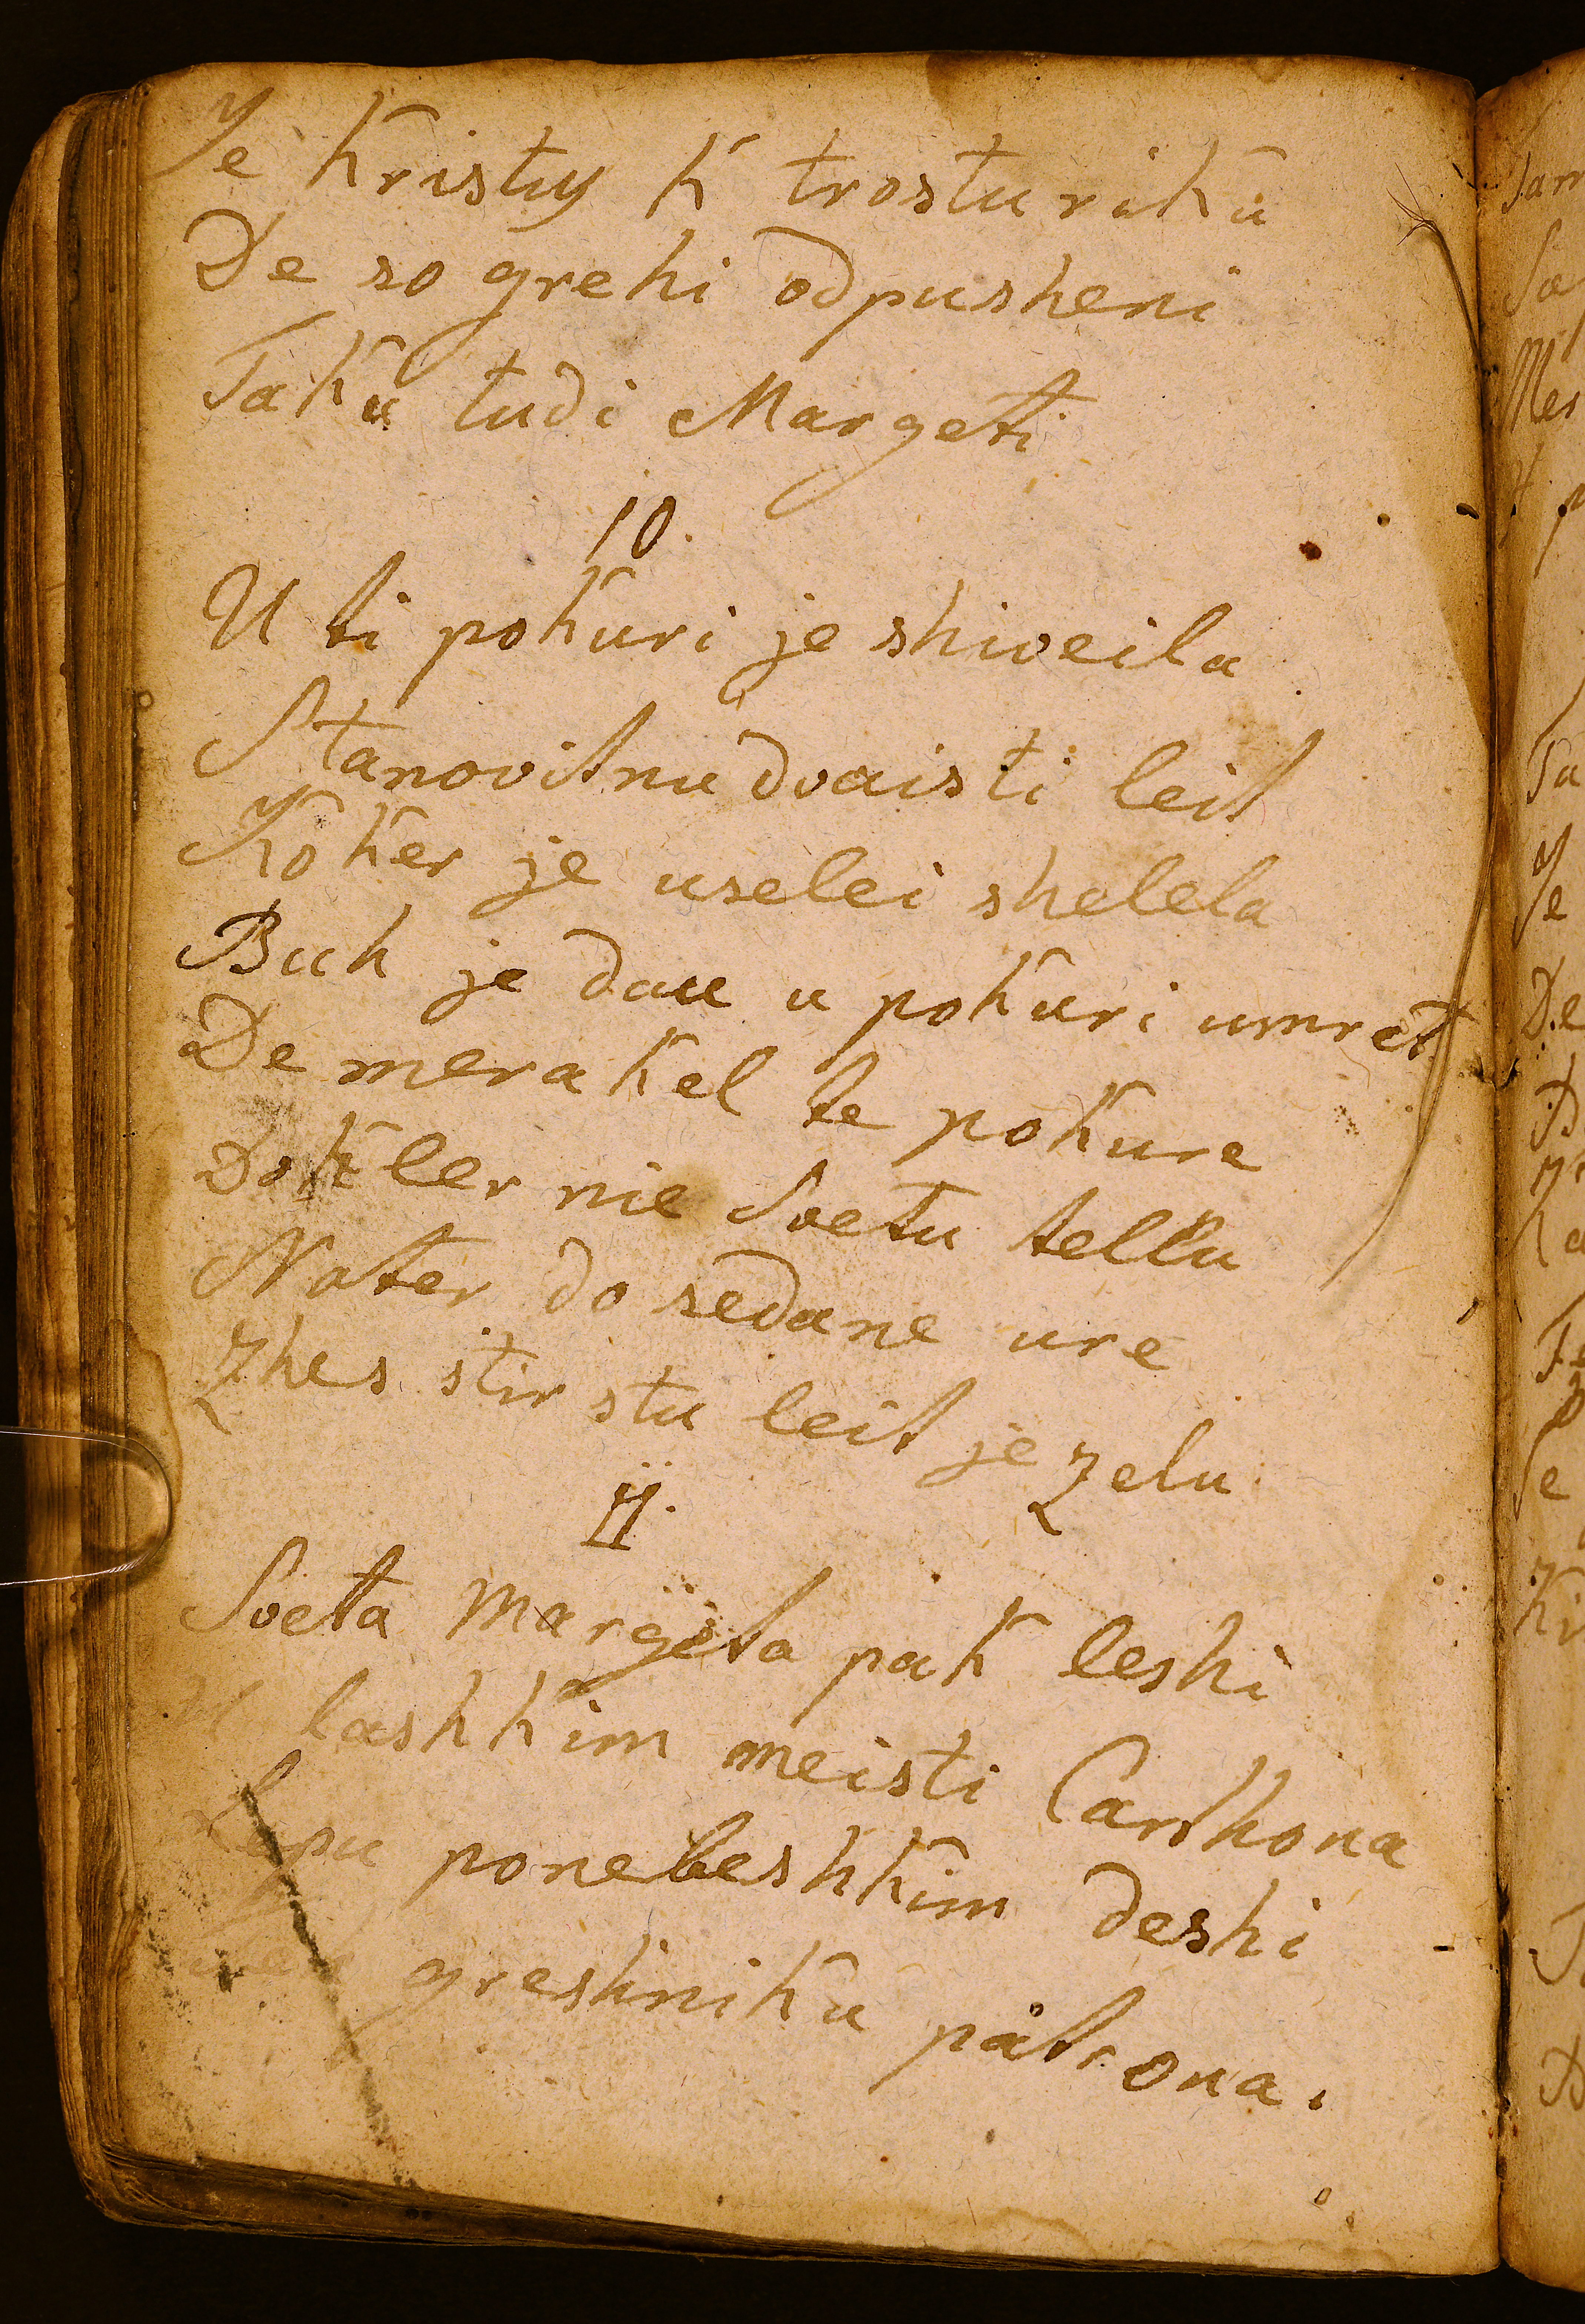 Je Kristus K trostu riku
De so grehi odpusheni
Taku tudi Margeti
10.
U ti pokuri je shiveila
Stanovitnu dvaisti leit
Koker je uselei shelela
Buh je dau u pokuri umret
De merakel te pokure
Dokler nie Svetu tellu
Nater do sedane ure
Zhes stir stu leit je Zelu
11.
Sveta Margeta pak leshi
lashkim meisti Carthona
Lepu ponebeshkim deshi
greshniku patrona.